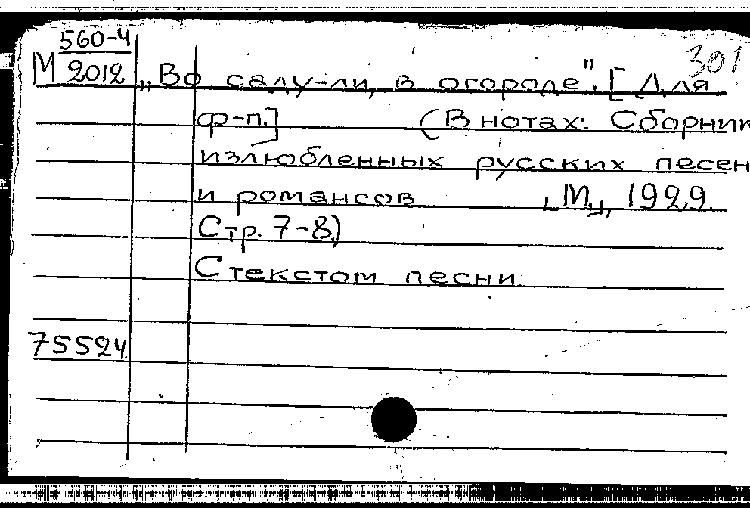 560-4
М 2012
301
„Во саду-ли, в огороде". [Для
ф-п.] (В нотах: Сборник
излюбленных русских песен
и романсов „М„, 1929.
Стр. 7-8)
С текстом песни.
75524